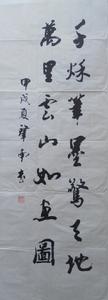 千秋筆墨驚天地
萬里雲山如畫圖
甲戌夏肇彰書